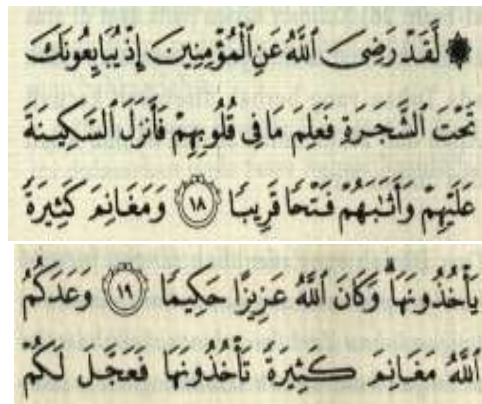 ۞ لَّقَدْ رَضِيَ ٱللَّهُ عَنِ ٱلْمُؤْمِنِينَ إِذْ يُبَايِعُونَكَ
تَحْتَ ٱلشَّجَرَةِ فَعَلِمَ مَا فِي قُلُوبِهِمْ فَأَنزَلَ ٱلسَّكِينَةَ
عَلَيْهِمْ وَأَثَٰبَهُمْ فَتْحًا قَرِيبًا ١٨ وَمَغَانِمَ كَثِيرَةً
يَأْخُذُونَهَا ۗ وَكَانَ ٱللَّهُ عَزِيزًا حَكِيمًا ١٩ وَعَدَكُمُ
ٱللَّهُ مَغَانِمَ كَثِيرَةً تَأْخُذُونَهَا فَعَجَّلَ لَكُمْ